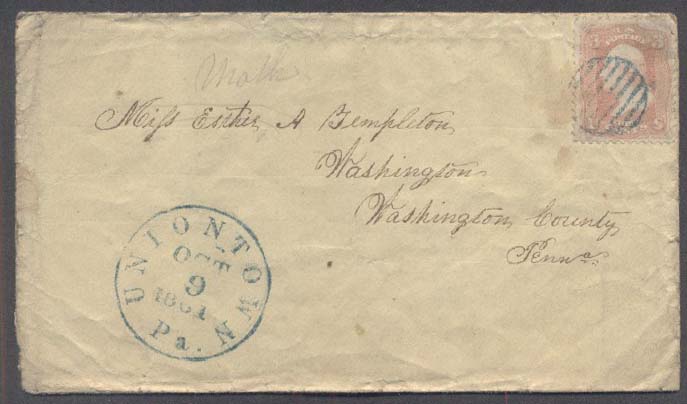 U.S. POSTAGE
3 3
Miss Esther A Templeton
Washington
Washington County
Penna
UNIONTOWN
OCT
9
1861
Pa.